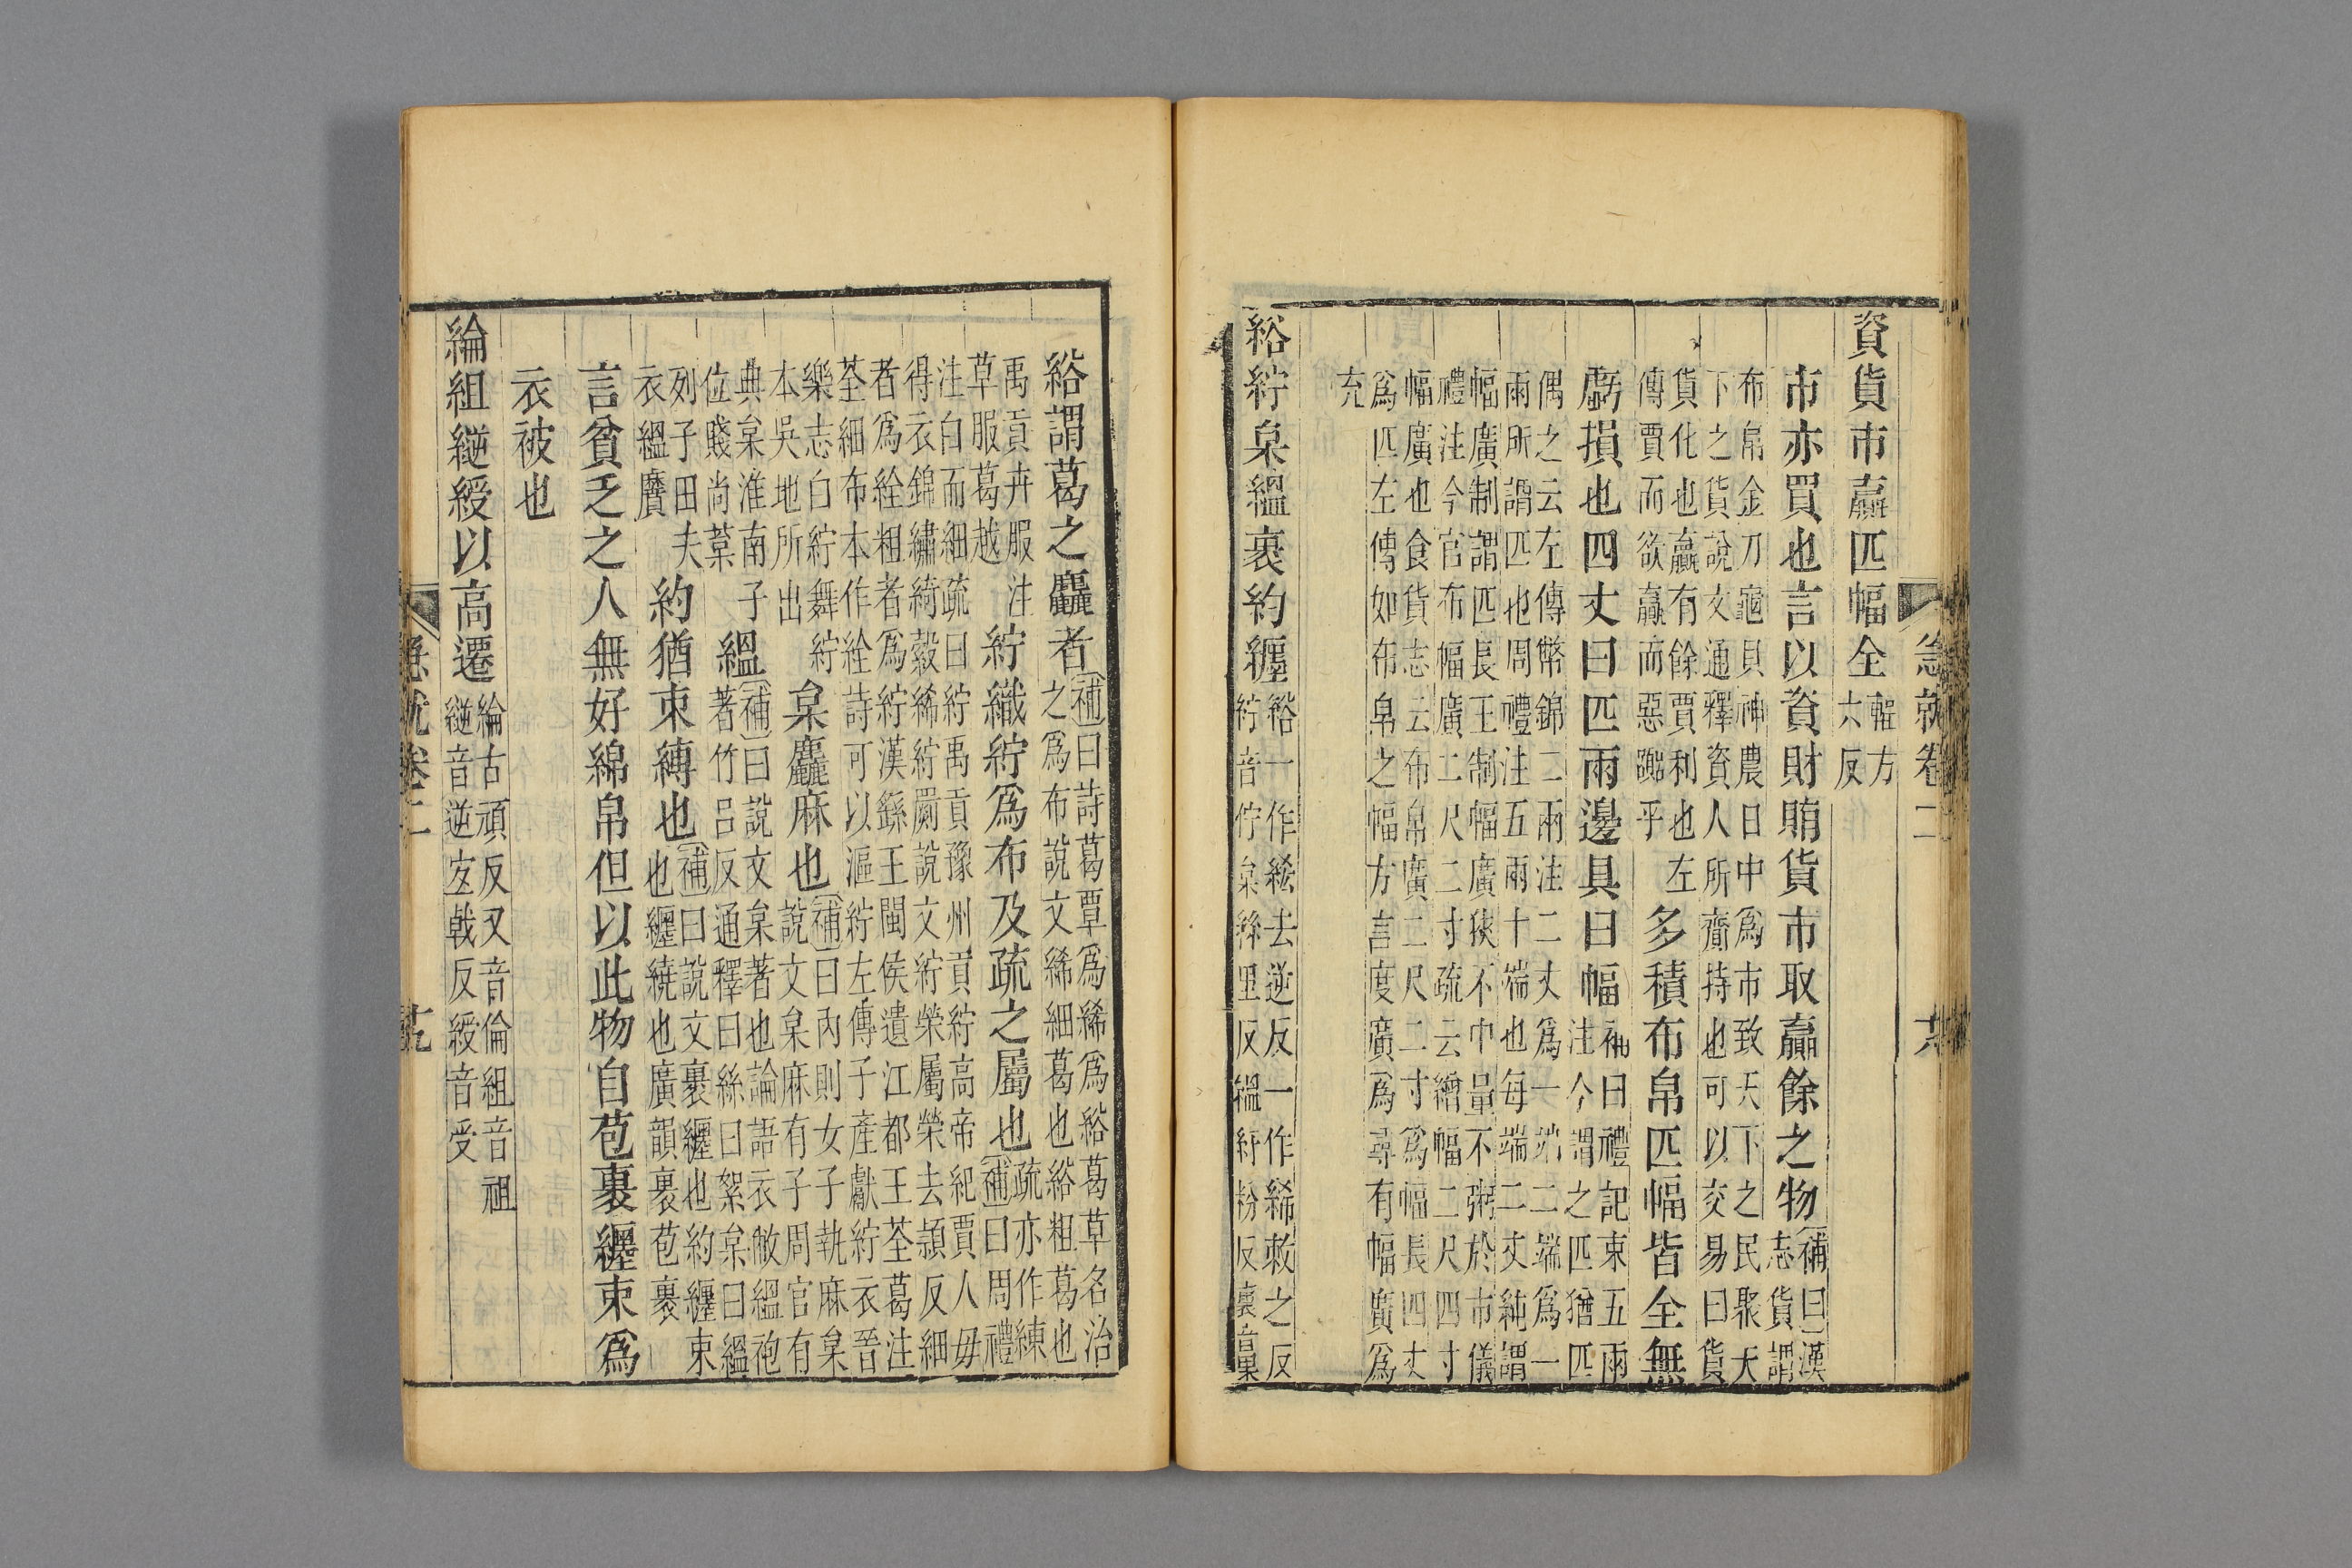 急就卷二
資貨市贏匹幅全
幅方
六反
市亦買也言以資財賄貨市取贏餘之物
補曰漢
志貨謂
布帛金刀龜貝神農日中爲市致天下之民聚天
下之貨說文通釋資人所齎持也可以交易曰貨
貨化也贏有餘賈利也左
傳賈而欲贏而惡嚻乎
多積布帛匹幅皆全無
虧損也四丈曰匹兩邊具曰幅
補曰禮記束五兩
注今謂之匹猶匹
偶之云左傳幣錦二兩注二丈爲一端二端爲一
兩所謂匹也周禮注五兩十端也每端二丈純謂
幅廣制謂匹長王制幅廣狹不中量不粥於市儀
禮注今官布幅廣二尺二寸疏云繒幅二尺四寸
幅廣也食貨志云布帛廣二尺二寸爲幅長四丈
爲匹左傳如布帛之幅方言度廣爲尋有幅廣爲
充
綌紵枲縕裹約纏
綌一作綋去逆反一作絺敕之反
紵音佇枲絲里反縕紆粉反裹音果
綌謂葛之麤者
補曰詩葛覃爲絺爲綌葛草名治
之爲布說文絺細葛也綌粗葛也
禹貢卉服注
草服葛越
紵織紵爲布及疏之屬也
疏亦作練
補曰周禮
注白而細疏曰紵禹貢豫州貢紵高帝紀賈人毋
得衣錦繡綺縠絺紵罽說文紵榮屬榮去熲反細
者爲絟粗者爲紵漢繇王閩侯遺江都王荃葛注
荃細布本作絟詩可以漚紵左傳子產獻紵衣晉
樂志白紵舞紵
本吳地所出
枲麤麻也
補曰內則女子執麻枲
說文枲麻有子周官有
典枲淮南子
位賤尚葈
縕
補曰說文枲著也論語衣敝縕袍
著竹呂反通釋曰絲曰絮枲曰縕
列子田夫
衣縕黂
約猶束縛也
補曰說文裹纏也約纏束
也纏繞也廣韻裹苞裹
言貧乏之人無好綿帛但以此物自苞裹纏束爲
衣被也
綸組縌綬以高遷
綸古頑反又音倫組音祖
縌音逆宜戟反綬音受
急就卷二